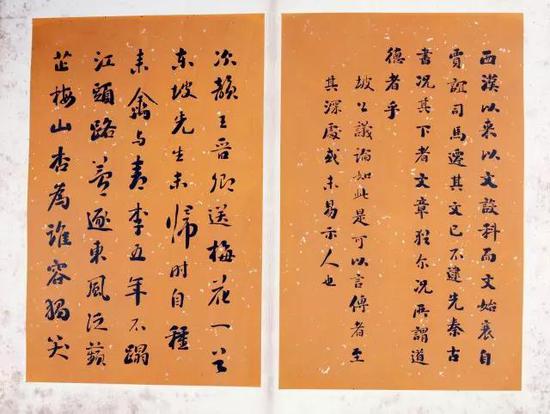 西漢以来以文設科而文始衰自
賈誼司馬遷其文已不逮先秦古
書况其下者文章猶尔况所謂道
德者乎
坡公議論如此是可以言傳者至
其深處或未易示人也
次韻王晉卿送梅花一首
东坡先生未歸时自種
来禽与青李五年不蹋
江頭路夢逐東風泛蘋
芷梅山杏為誰容獨笑